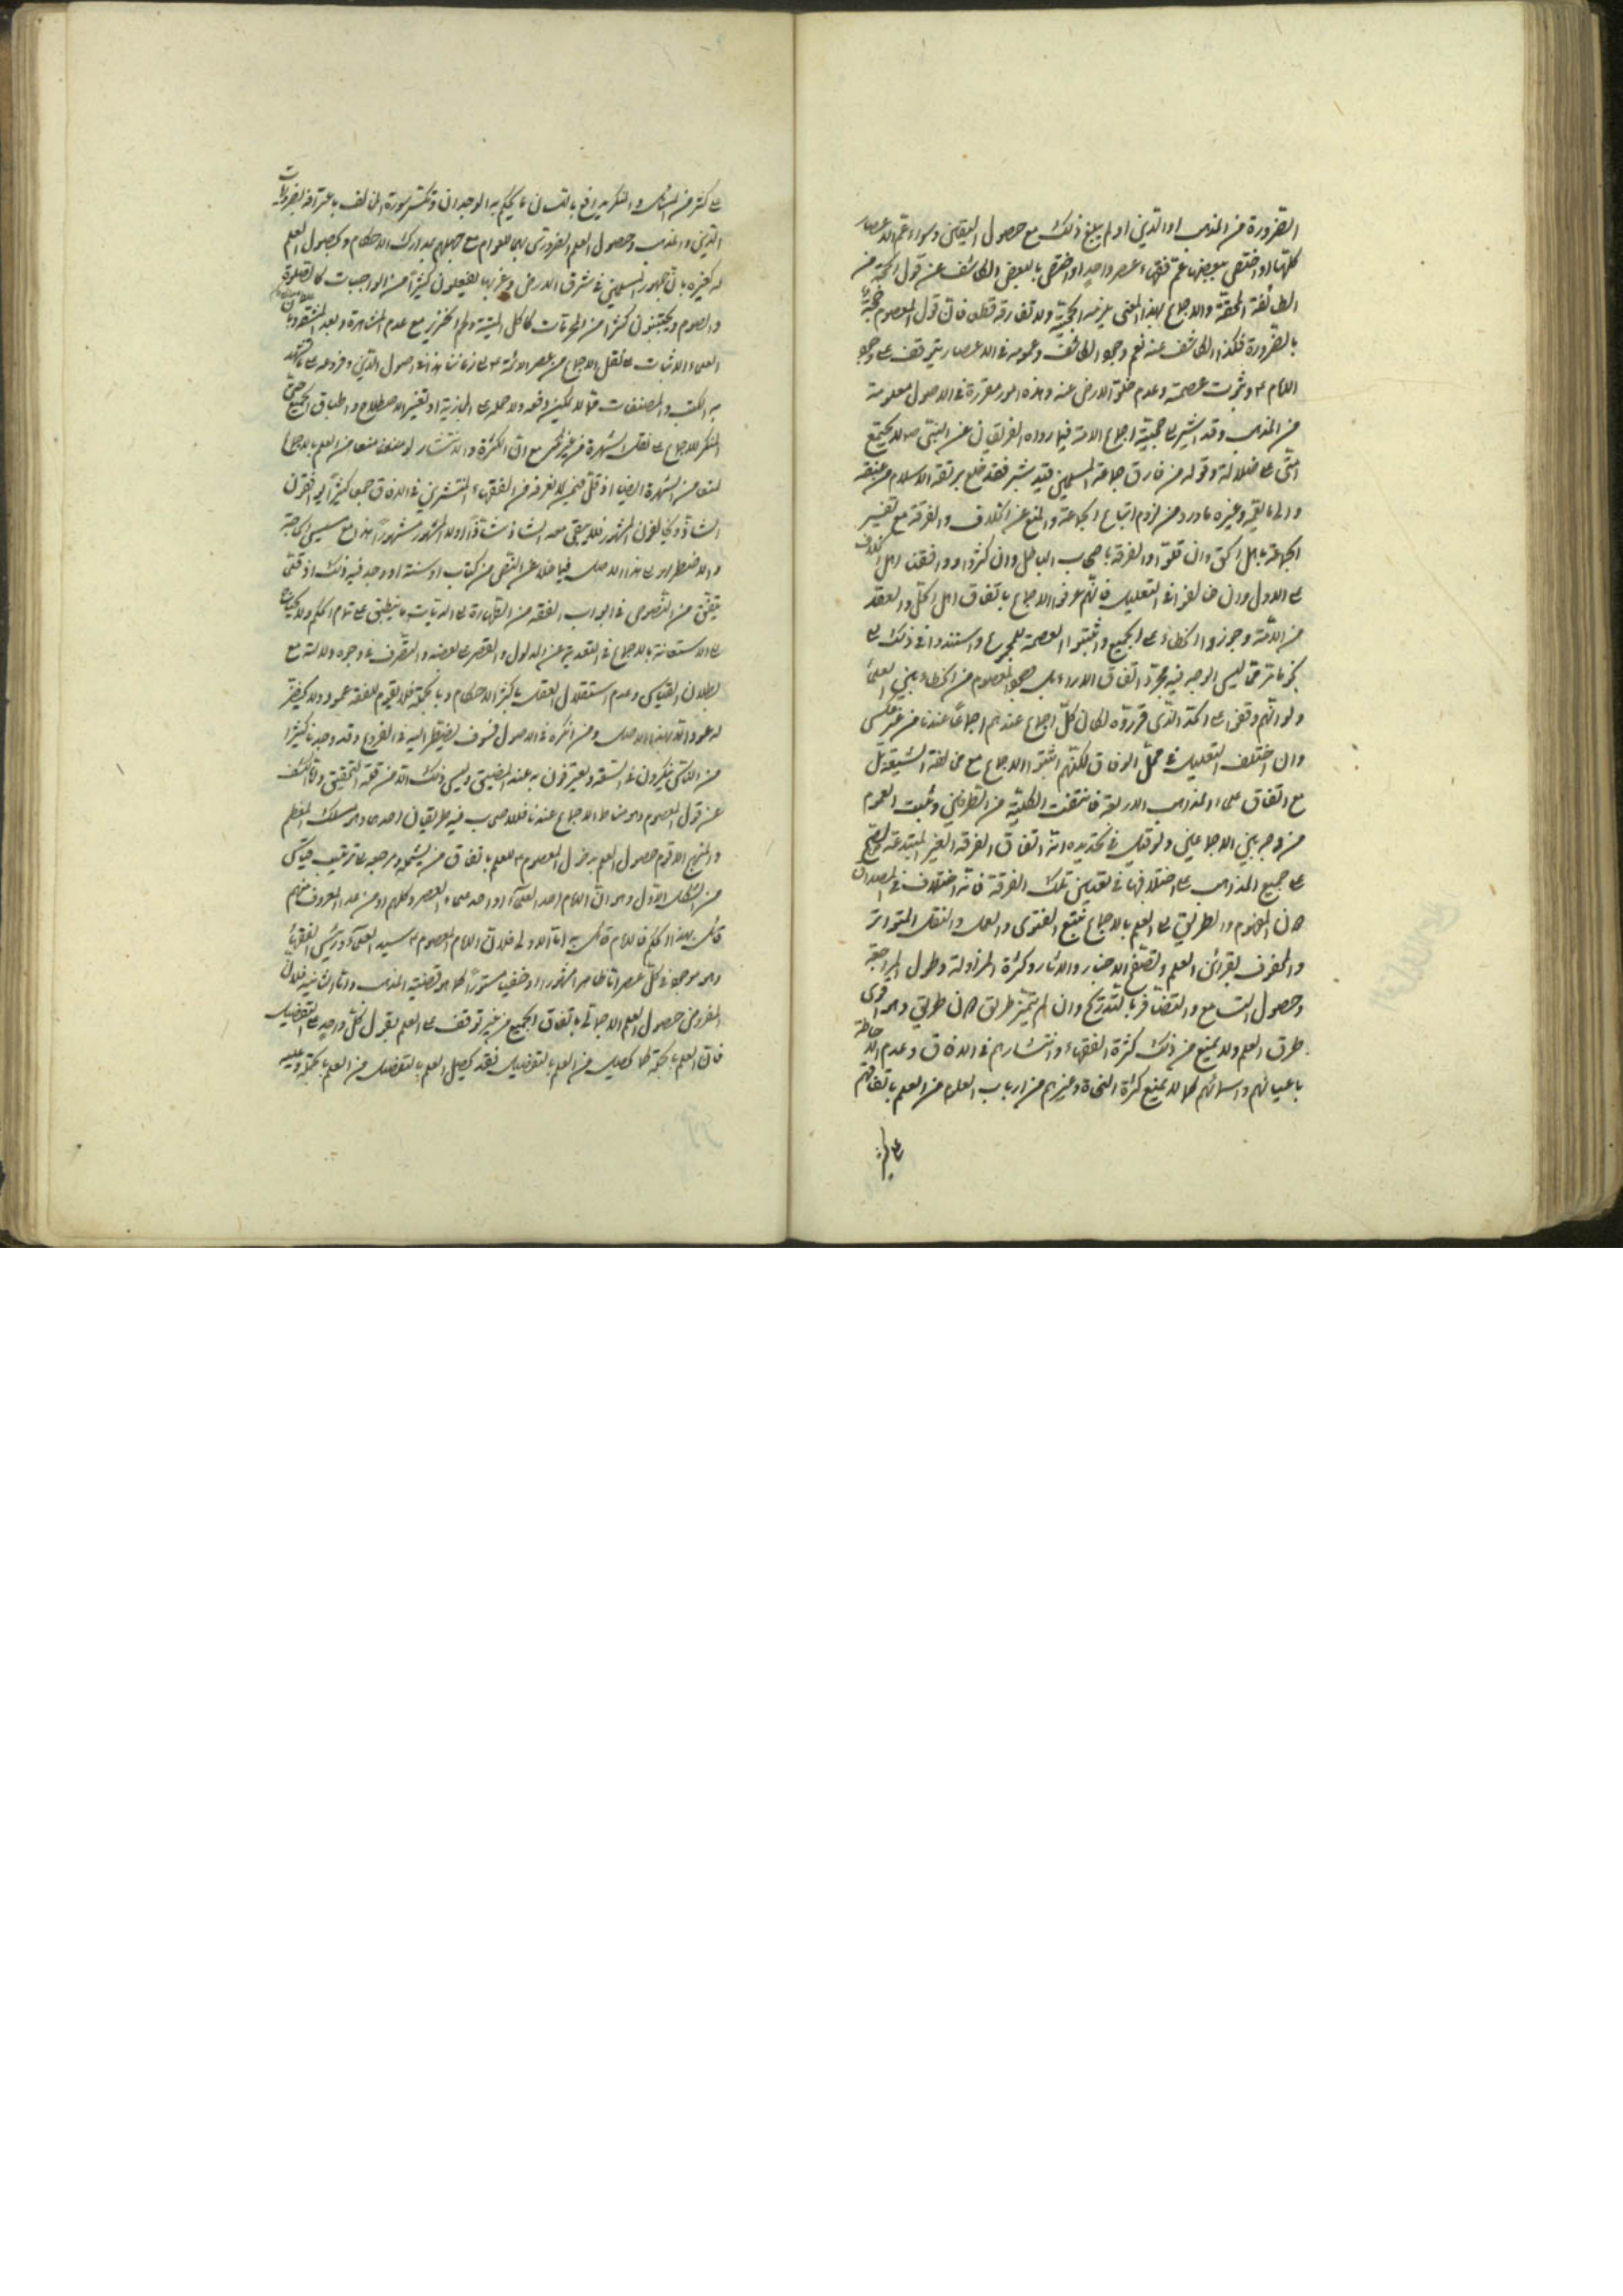 الضرورة من المذهب او الدين او لم يبلغ ذلك مع حصول اليقين وسواء عم الاعصار
كلها او اختص ببعضها عم فقهاء عصر واحد او اختص بالبعض الكاشف عن قول الحجة من
الطائفة المحقة والاجماع بهذا المعنى يلزمه الحجية ولا تفارقه قطعا فان قول المعصوم حجة
بالضرورة فكذا الكاشف عنه نعم وجود الكاشف وعمومه في الاعصار يتوقف على وجود
الامام ع وثبوت عصمته وعدم خلو الارض عنه وهذه امور مقررة في الاصول معلومة
من المذهب وقد اشير الى حجية اجماع الامة فيما رواه الفريقان عن النبي ص لا تجتمع
امتي على ضلالة وقوله من فارق جماعة المسلمين قيد شبر فقد خلع ربقة الاسلام من عنقه
والى ما يقر وغيره ما ورد من لزوم اتباع الجماعة والمنع عن الخلاف والفرقة مع تفسير
الجماعة باهل الحق وان قلوا والفرقة باصحاب الباطل وان كثروا ووافقنا اهل الخلاف
على الاول وان خالفوا في التعليل فانهم عرفوا الاجماع باتفاق اهل الحل والعقد
من الامة وجوزوا الخطاء على الجميع واثبتوا العصمة للمجموع واستندوا في ذلك الى
نحو ما مر مما ليس الوجه فيه مجرد اتفاق الاراء بل هو المعصوم من الخطاء وبين العلماء
ولو انهم وقفوا على الحد الذي قرروه لكان كل اجماع عندهم اجماعا عندنا من غير عكس
وان اختلف التعليل في محل الوفاق لكنهم اثبتوا الاجماع مع مخالفة الشيعة بل
مع اتفاق علماء المذاهب الاربعة فانتقضت الكلية من الطرفين وثبت العموم
من وجه بين الاجماعين ولو قيل في تحديده انه اتفاق الفرقة الغير المبتدعة لصح
على جميع المذاهب على اختلافها في تعيين تلك الفرقة فانه اختلاف في المصداق
لان المفهوم والطريق الى العلم بالاجماع تتبع الفتوى والعمل والنقل المتواتر
والمحفوف بقرائن العلم وتصفح الاخبار والاثار وكثرة المزاولة وطول المراجعة
وحصول التسامع والتضافر بالتدريج وان لم يتميز طريق لان طريق وهو اقوى
طرق العلم ولا يمنع من ذلك كثرة الفقهاء وانتشارهم في الافاق وعدم الاحاطة
باعيانهم واسمائهم كما لا يمنع كثرة النحاة وغيرهم من ارباب العلوم من العلم باتفاقهم
على كثير من المسائل والمنكر يدافع باللسان ما يحكم به الوجدان وتكسر سورة المخالف باعترافه بضروريات
الدين والمذهب وحصول العلم الضروري بها للعوام مع جهلهم بمدارك الاحكام وبحصول العلم
له كغيره بان جمهور المسلمين في شرق الارض وغربها يفعلون كثيرا من الواجبات كالصلوة
والصوم ويجتنبون كثيرا من المحرمات كاكل الميتة ولحم الخنزير مع عدم المشاهدة وبعد
العلماء الاثبات على نقل الاجماع من عصر الائمة ع الى زماننا هذا في اصول الدين وفروعه على ما تشهد
به الكتب والمصنفات مما لا يمكن دفعه ولا حمله على المجازية او تغير الاصطلاح واطباق الجميع حتى
المنكر للاجماع على نقل الشهرة من غير نكير مع ان الكثرة والانتشار لو منعتا منعتا من العلم بالاجماع
لمنعتا من الشهرة ايضا اذ قل فيمن لا نعرفه من الفقهاء المنتشرين في الافاق جمعا كثيرا يوافقون
الشاذ ويخالفون المشهور فلا يبقى معه الشاذ شاذا ولا المشهور مشهورا هذا مع مسيس الحاجة
والاضطرار الى هذا الاصل فيما خلا عن النص من كتاب او سنة او وجد فيه ذلك اذ قلما
يتفق من النصوص في ابواب الفقه من الطهارة الى الديات ما ينطبق على تمام الحكم ولا يحتاج
الى الاستعانة بالاجماع في التعدية عن المدلول والقصر على بعضه والتصرف في وجوه دلالته مع
بطلان القياس وعدم استقلال العقل باكثر الاحكام وبالجملة فلا يقوم للفقه عمود ولا يخضر
له عود الا بهذا الاصل ومن انكره في الاصول فسوف يضطر اليه في الفروع وقد وجدنا كثيرا
من الناس ينكرون في السعة ويعترفون به عند المضيق وليس ذلك الا من قلة التحقيق واما كشف
عن قول المعصوم وهو مناط الاجماع عندنا فللاصحاب فيه طريقان احدهما وهو مسلك المعظم
والمنهج الاقوم حصول العلم بقول المعصوم ع للعلم باتفاق من يشمله ومرجعه الى ترتيب قياس
من الشكل الاول وهو ان الامام احد العلماء او احد علماء العصر وكلهم او من عدا المعروف منهم
قائل بهذا الحكم فالامام قائل به اما الاولى فلان الامام المعصوم ع سيد العلماء ورئيس الفقهاء
وهو موجود في كل عصر اما ظاهرا مشهورا او خفيا مستورا كما هو قضية المذهب واما الثانية فلان
المفروض حصول العلم الاجمالي باتفاق الجميع من غير توقف على العلم بقول كل واحد على التفصيل
فان العلم بالجملة كما يحصل من العلم بالتفصيل فقد يحصل العلم بالتفصيل من العلم بالجملة وعليه